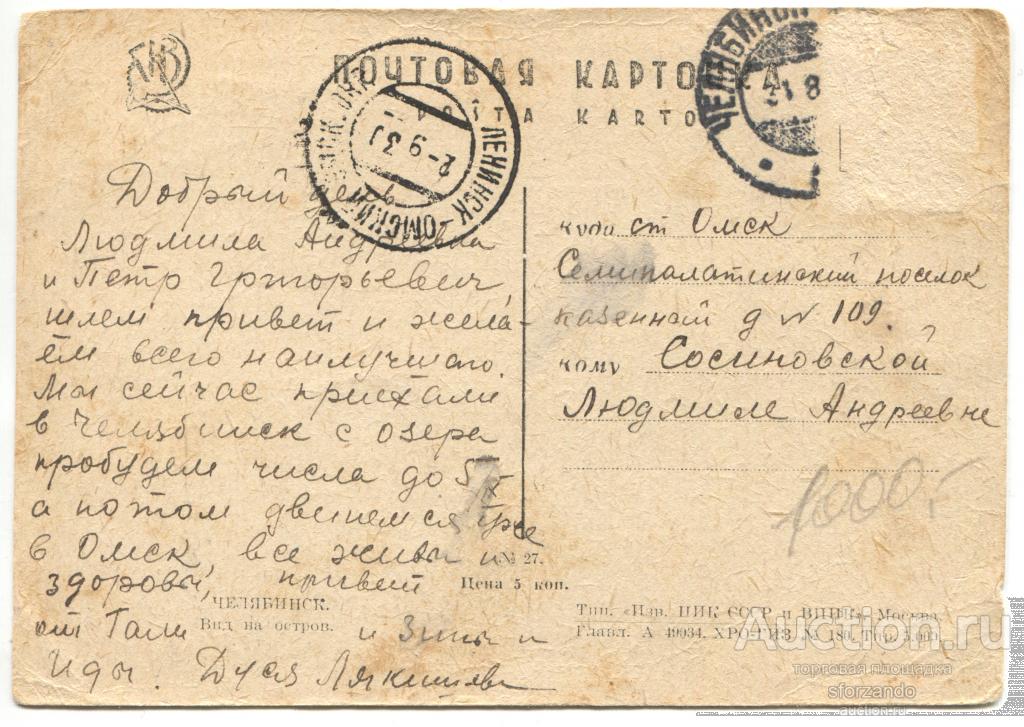 ПОЧТОВАЯ КАРТОЧКА
KARTO
ЛЕНИНСК-ОМСКИЙ
2-9 3
ЧЕЛЯБИНСК
31 8
Добрый день
Людмила Андреевна
и Петр Григорьевич,
шлем привет и жела-
ем всего наилучшего.
Мы сейчас приехали
в Челябинск с озера
пробудем числа до 5
а потом двинемся уже
в Омск, все живы и
здоровы, привет
от Гали и Зины и
Иды. Дуся
куда ст Омск
Семипалатинский поселок
казенный д № 109.
кому Сосновской
Людмиле Андреевне
1000,-
№ 27.
Цена 5 коп.
ЧЕЛЯБИНСК.
Вид на остров.
Тип. «Изв. ЦИК СССР и ВЦИК» Москва.
Главл. А 49034. ХРОМГИЗ № 180. Тир. 5.000
Auction.ru
торговая площадка
sforzando
auction.ru